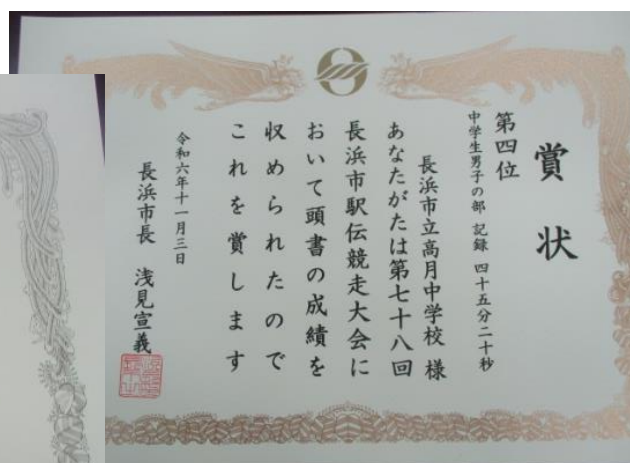 賞状
第四位
中学生男子の部 記録 四十五分二十秒
長浜市立高月中学校 様
あなたがたは第七十八回
長浜市駅伝競走大会に
おいて頭書の成績を
収められたので
これを賞します
令和六年十一月三日
長浜市長 浅見宣義